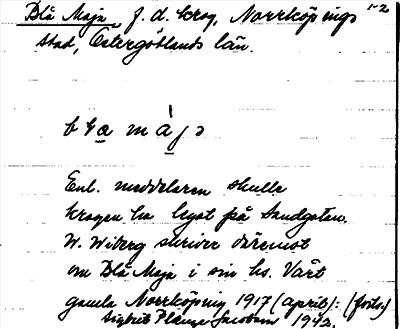 Blå Maja, f. d. krog, Norrköpings 1-2
stad, Östergötlands län.
Enl. meddelaren skulle
krogen ha legat på Sandgatan.
W. Wiberg skriver däremot
om Blå Maja i sin hs. Vårt
gamla Norrköping 1917 (april): (forts.)
Sigbrit Plænge Jacobson 1942.